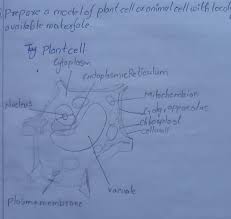 Prepare a model of plant cell or animal cell with locally
available materials
Plant cell
Cytoplasm
Endoplasmic Reticulum
Mitochondrion
Nucleus
Golgi apparatus
Chloroplast
cell wall
Plasma membrane
vacuole